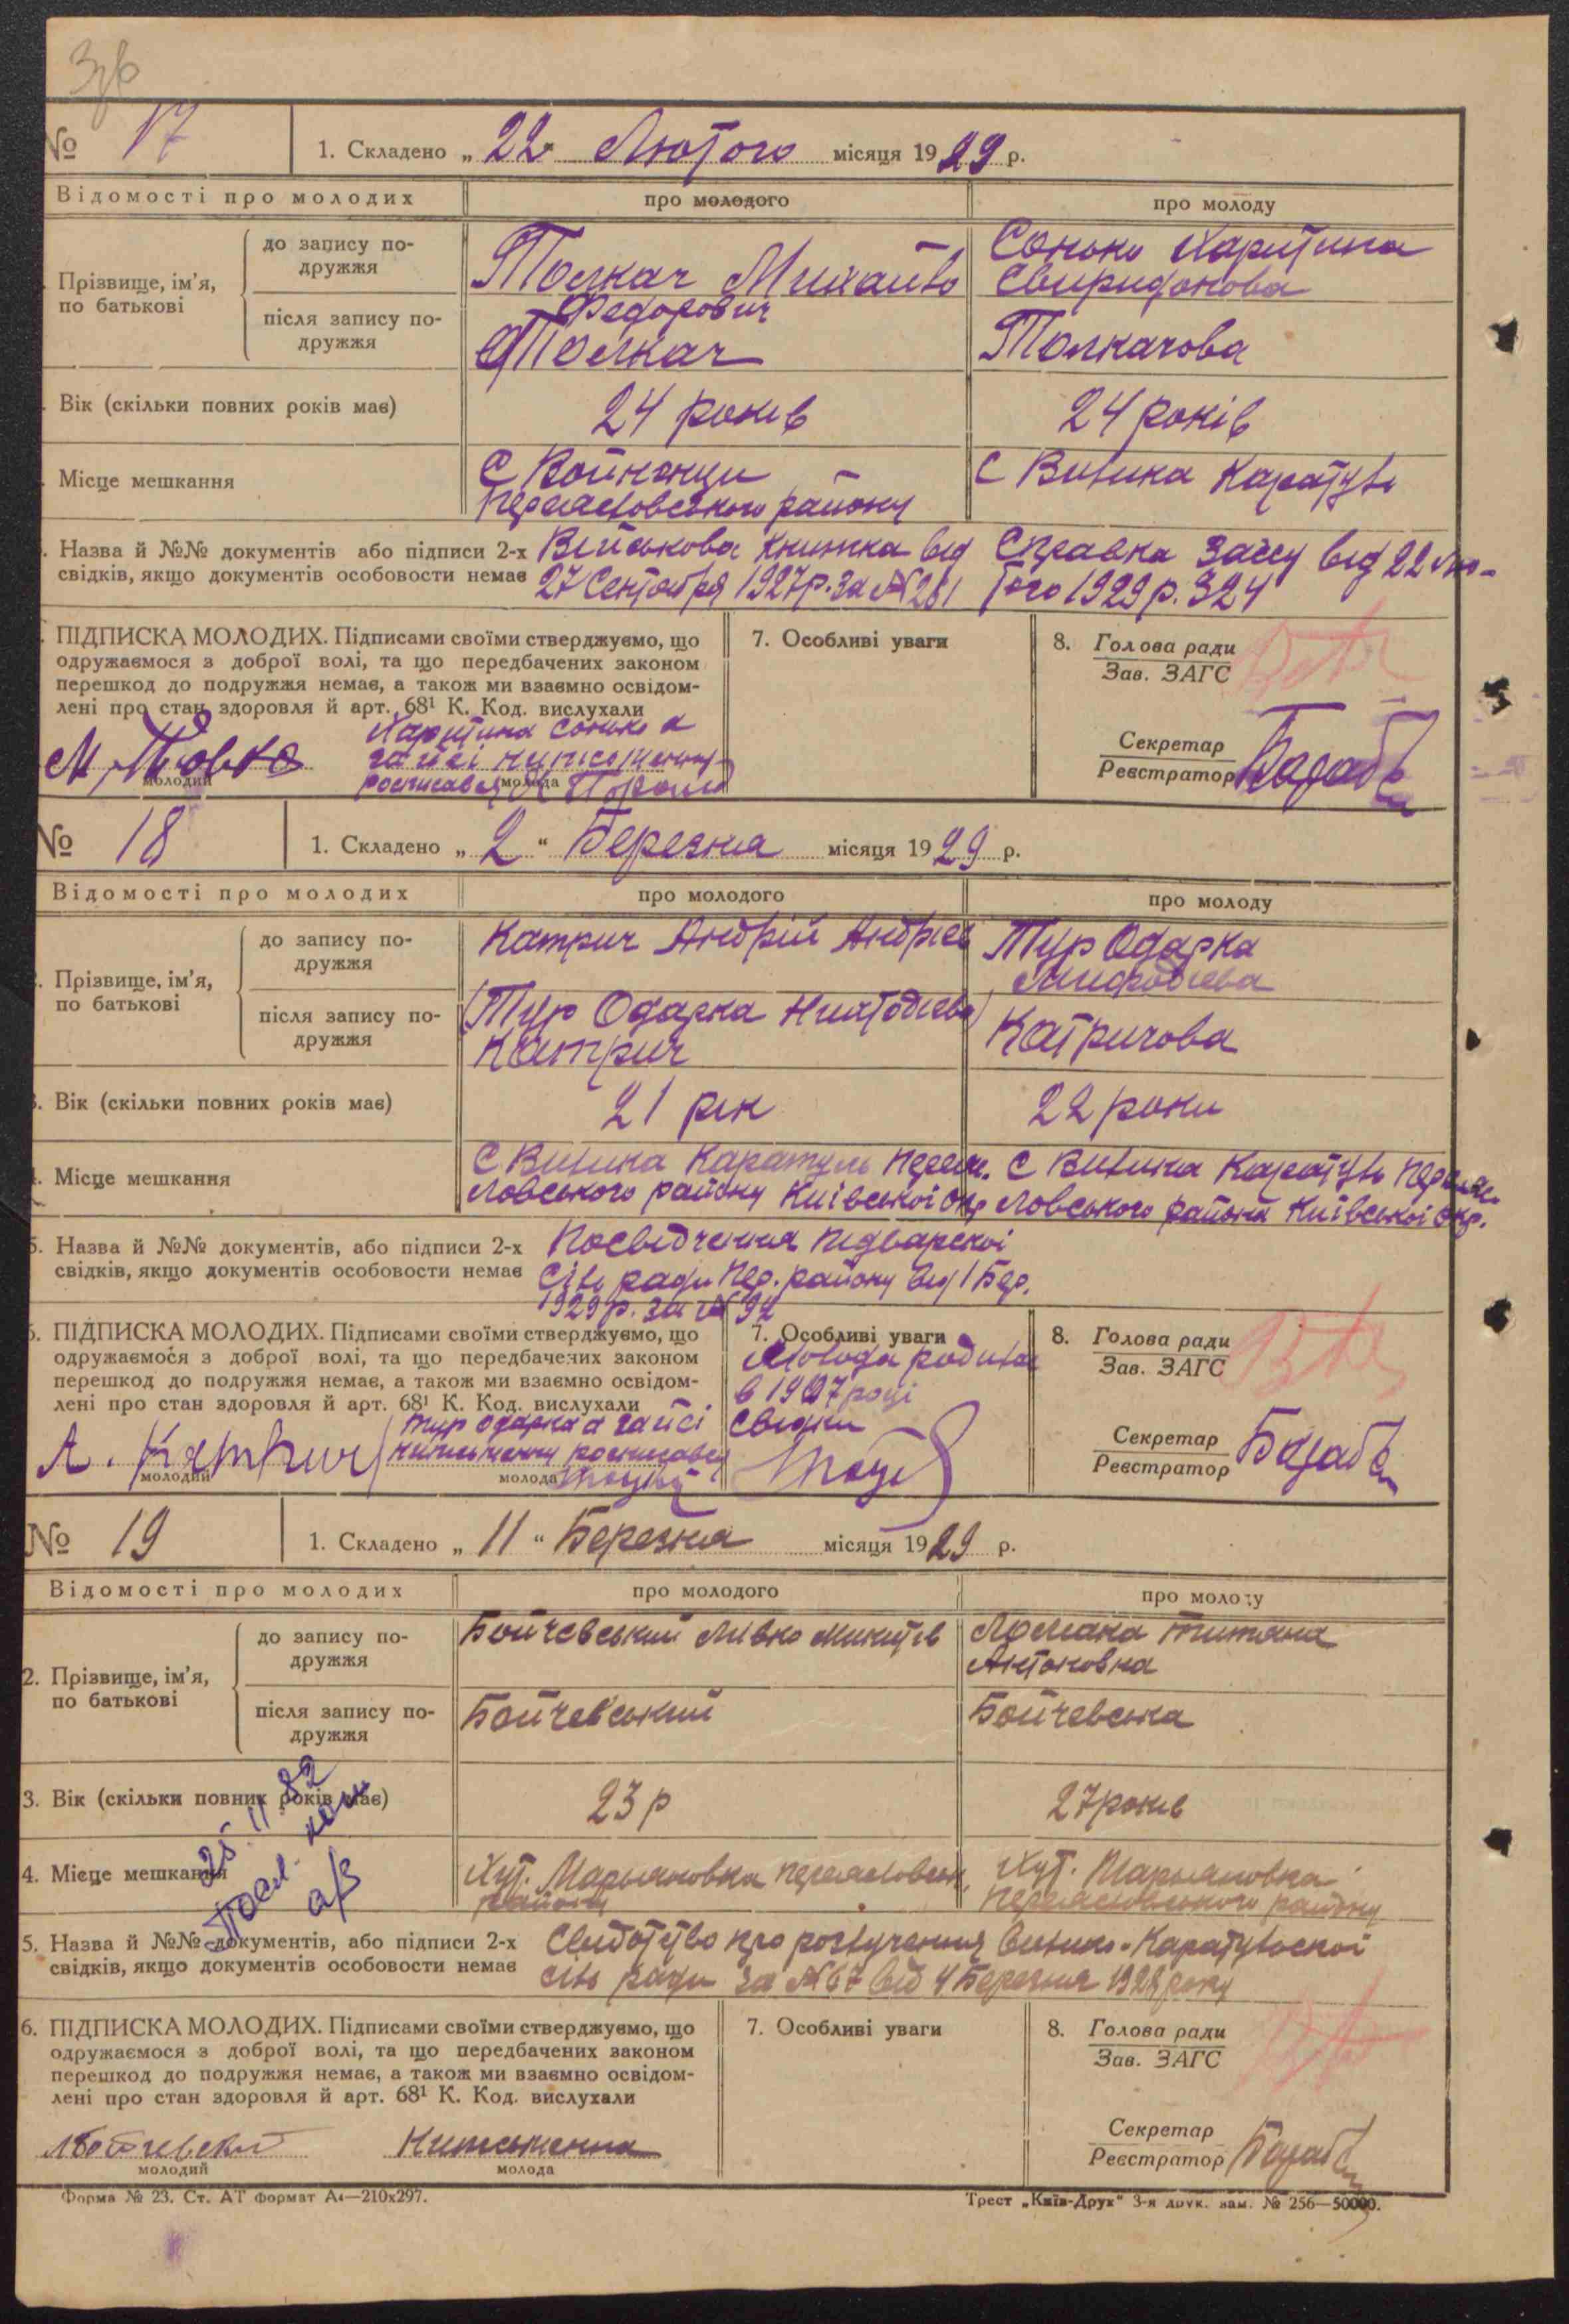 № 17
1. Складено „ 22 " Лютого місяця 1929 р.
Відомості про молодих
про молодого
про молоду
Прізвище, ім'я, по батькові
до запису подружжя
Толкач Михайло Федорович
Сонько Харитина Свиридонова
після запису подружжя
Толкач
Толкачова
Вік (скільки повних років має)
24 років
24 років
Місце мешкання
с Войтовци
Переяславського району
с Велика Каратуль
Назва й №№ документів або підписи 2-х свідків, якщо документів особовости немає
Військова книжка від
27 Сентября 1927р. За № 261
Справка Загсу від 22 лю-
того 1929 р. 324
ПІДПИСКА МОЛОДИХ. Підписами своїми стверджуємо, що
одружаємося з доброї волі, та що передбачених законом
перешкод до подружжя немає, а також ми взаємно освідом-
лені про стан здоровля й арт. 68¹ К. Код. вислухали
Харитина Сонько а
молодий
молода
7. Особливі уваги
8. Голова ради
Зав. ЗАГС
Секретар
Реєстратор
№ 18
1. Складено „ 2 “ Березня місяця 1929 р.
Відомості про молодих
про молодого
про молоду
Прізвище, ім'я, по батькові
до запису подружжя
Катрич Андрій Андріев
Тур Одарка
Мифодієва
після запису подружжя
(Тур Одарка
Катрич
Катричова
3. Вік (скільки повних років має)
21 рік
22 роки
4. Місце мешкання
с Велика Каратуль Переяс.
ловського району Київської окр
с Велика Каратуль Переяс.
ловського району Київської окр.
5. Назва й №№ документів, або підписи 2-х свідків, якщо документів особовости немає
Посвідчення Підварскої
Сіль ради Пер. району від 1 Бер.
1929р. за № 92
6. ПІДПИСКА МОЛОДИХ. Підписами своїми стверджуємо, що
одружаємося з доброї волі, та що передбачених законом
перешкод до подружжя немає, а також ми взаємно освідом-
лені про стан здоровля й арт. 68¹ К. Код. вислухали
А. Катрич
Тур Одарка а
молодий
молода
7. Особливі уваги
Молода родилас
в 1907 році
Свідки
8. Голова ради
Зав. ЗАГС
Секретар
Реєстратор
№ 19
1. Складено „ 11 “ Березня місяця 1929 р.
Відомості про молодих
про молодого
про молоду
2. Прізвище, ім'я, по батькові
до запису подружжя
Бойчевський Левко Микитів
Ломака Титяна
Антоновна
після запису подружжя
Бойчевський
Бойчевська
3. Вік (скільки повних років має)
23 р
27 років
25. 11. 82
4. Місце мешкання
Хут. Марьяновка Переяславськ.
району
Хут. Марьяновка
Переяславського району
5. Назва й №№ документів, або підписи 2-х свідків, якщо документів особовости немає
Свидоцтво про розлучення Велико-Каратульскої
сіль ради за № 67 від 4 Березня 1929 року
6. ПІДПИСКА МОЛОДИХ. Підписами своїми стверджуємо, що
одружаємося з доброї волі, та що передбачених законом
перешкод до подружжя немає, а також ми взаємно освідом-
лені про стан здоровля й арт. 68¹ К. Код. вислухали
Неписьменна
молодий
молода
7. Особливі уваги
8. Голова ради
Зав. ЗАГС
Секретар
Реєстратор
Форма № 23. Ст. АТ формат А₄—210x297.
Трест „Київ-Друк“ 3-я друк. зам. № 256—50000.